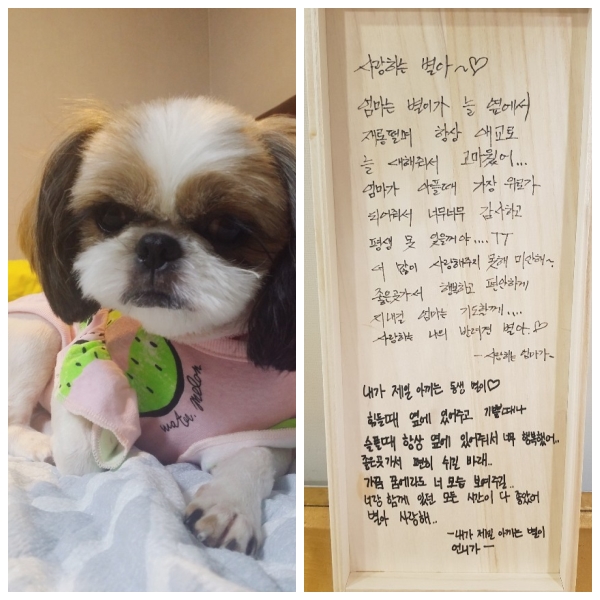 wate melon
사랑하는 별아~♡
엄마는 별이가 늘 옆에서
재롱떨며 항상 애교로
늘 애해줘서 고마웠어...
엄마가 아플때 가장 위로가
되어줘서 너무너무 감사하고
평생 못 잊을꺼야....ㅜㅜ
더 많이 사랑해주지 못해 미안해~
좋은곳가서 행복하고 편안하게
지내길 엄마는 기도할께....
사랑하는 나의 반려견 별아♡
- 사랑하는 엄마가~
내가 제일 아끼는 동생 별이♡
힘들때 옆에 있어주고 기쁠때나
슬플때 항상 옆에 있어줘서 너무 행복했어..
좋은곳가서 편히 쉬길 바래..
가끔 꿈에라도 너 모습 보여주길..
너랑 함께 있던 모든 시간이 다 좋았어
별아 사랑해..
-내가 제일 아끼는 별이
언니가-